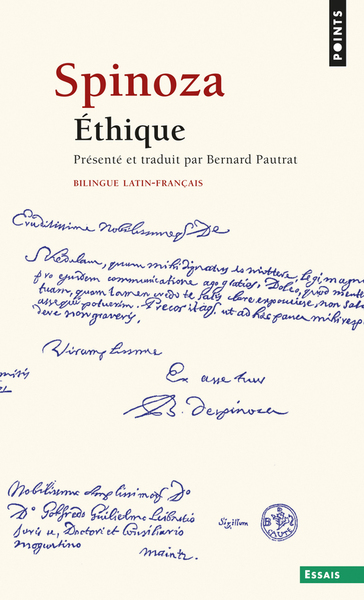 POINTS
Spinoza
Éthique
Présenté et traduit par Bernard Pautrat
BILINGUE LATIN-FRANÇAIS
Eruditissime Nobilissimeq; De
Schedulam, quam mihi dignatus es mittere, legi, magna
pro ejusdem communicatione ago gratias. Doleo, quod mente
tuam, quam tamen credo te satis clare exposuisse, non
assequi potuerim. Precor itaq; ut ad hæc pauca mihi resp
dere non graveris.
Vir amplissime
Ex asse tuus
B. despinoza
Nobilissimo Amplissimoq; Do
Do Gotfredo Guilielmo Leibnitio
Juris u. Doctori et Consiliario
Moguntino
Maintz
Sigillum
ESSAIS